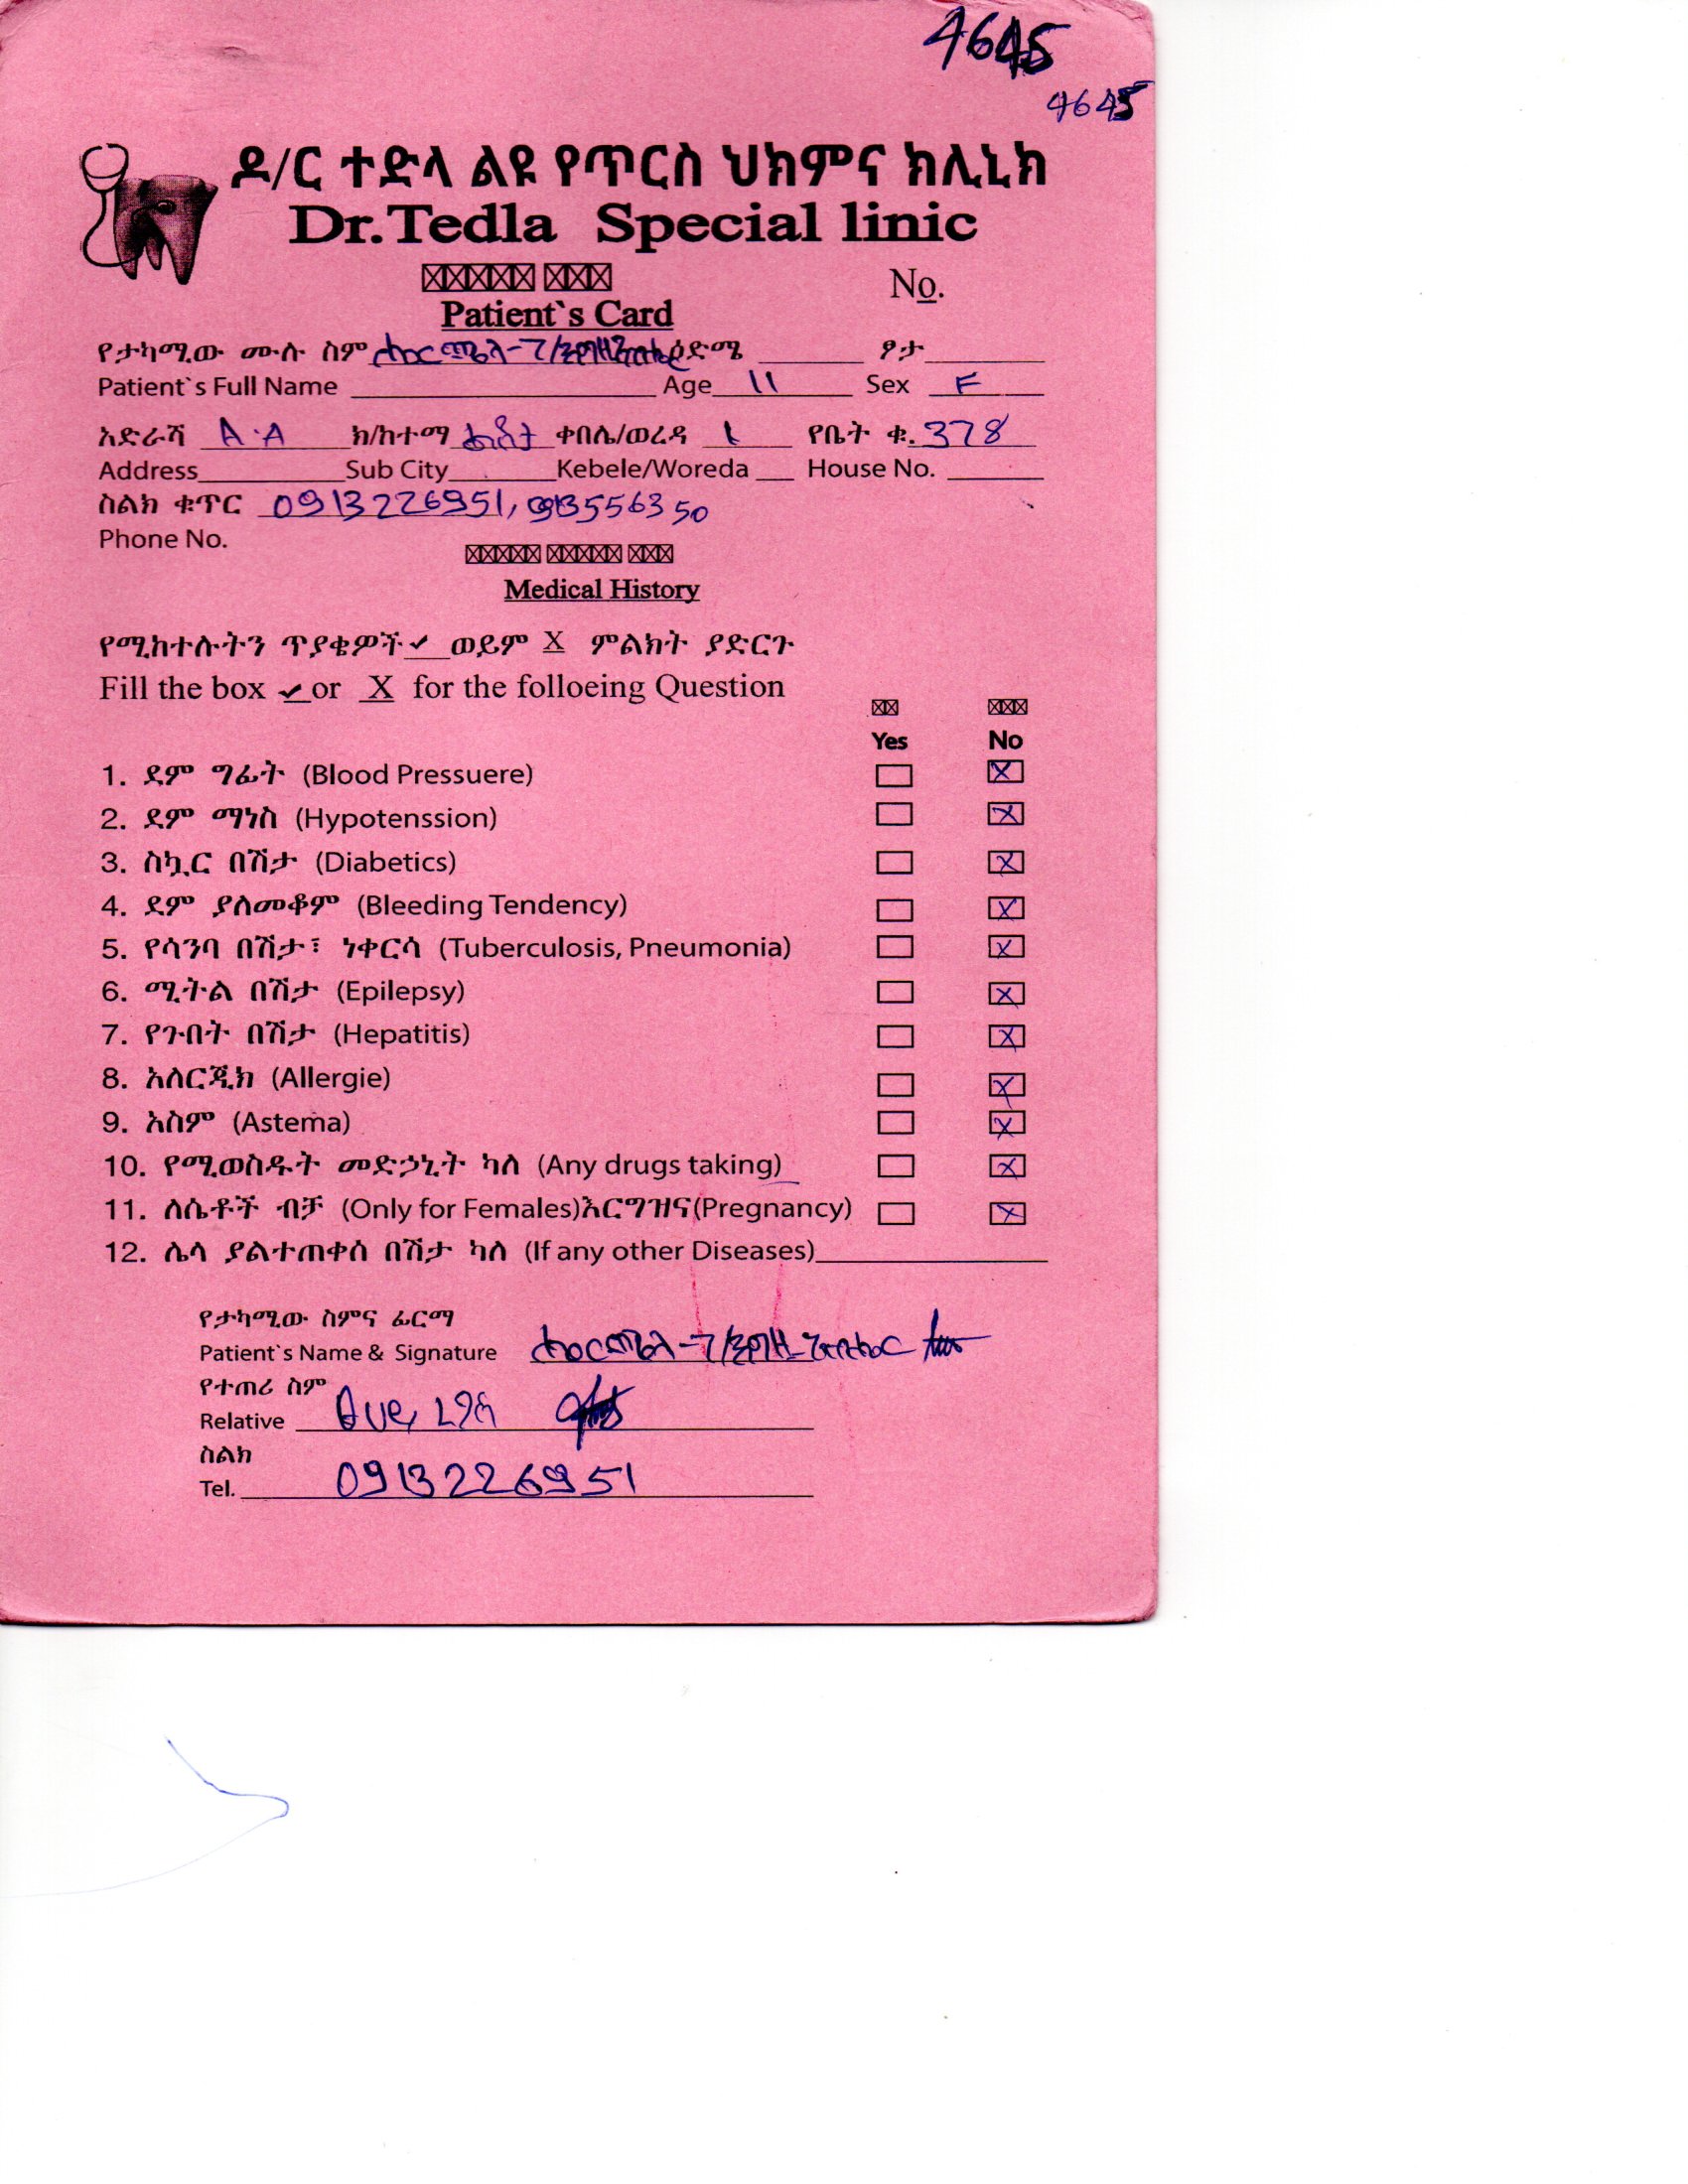 4645
4645
ዶ/ር ተድላ ልዩ የጥርስ ህክምና ክሊኒክ
Dr.Tedla Special linic
No.
Patient`s Card
የታካሚው ሙሉ ስም ዕድሜ ፆታ
Patient`s Full Name Age 11 Sex F
አድራሻ A.A ክ/ከተማ ቀበሌ/ወረዳ 1 የቤት ቁ. 378
Address Sub City Kebele/Woreda House No.
ስልክ ቁጥር 0913226951, 0913556350
Phone No.
Medical History
የሚከተሉትን ጥያቄዎች ✓ ወይም X ምልክት ያድርጉ
Fill the box ✓ or X for the folloeing Question
Yes No
1. ደም ግፊት (Blood Pressuere) X
2. ደም ማነስ (Hypotenssion) X
3. ስኳር በሽታ (Diabetics) X
4. ደም ያለመቆም (Bleeding Tendency) X
5. የሳንባ በሽታ፣ ነቀርሳ (Tuberculosis, Pneumonia) X
6. ሚትል በሽታ (Epilepsy) X
7. የጉበት በሽታ (Hepatitis) X
8. አለርጂክ (Allergie) X
9. አስም (Astema) X
10. የሚወስዱት መድኃኒት ካለ (Any drugs taking) X
11. ለሴቶች ብቻ (Only for Females)እርግዝና(Pregnancy) X
12. ሌላ ያልተጠቀሰ በሽታ ካለ (If any other Diseases)
የታካሚው ስምና ፊርማ
Patient`s Name & Signature
የተጠሪ ስም
Relative
ስልክ
Tel. 0913226951